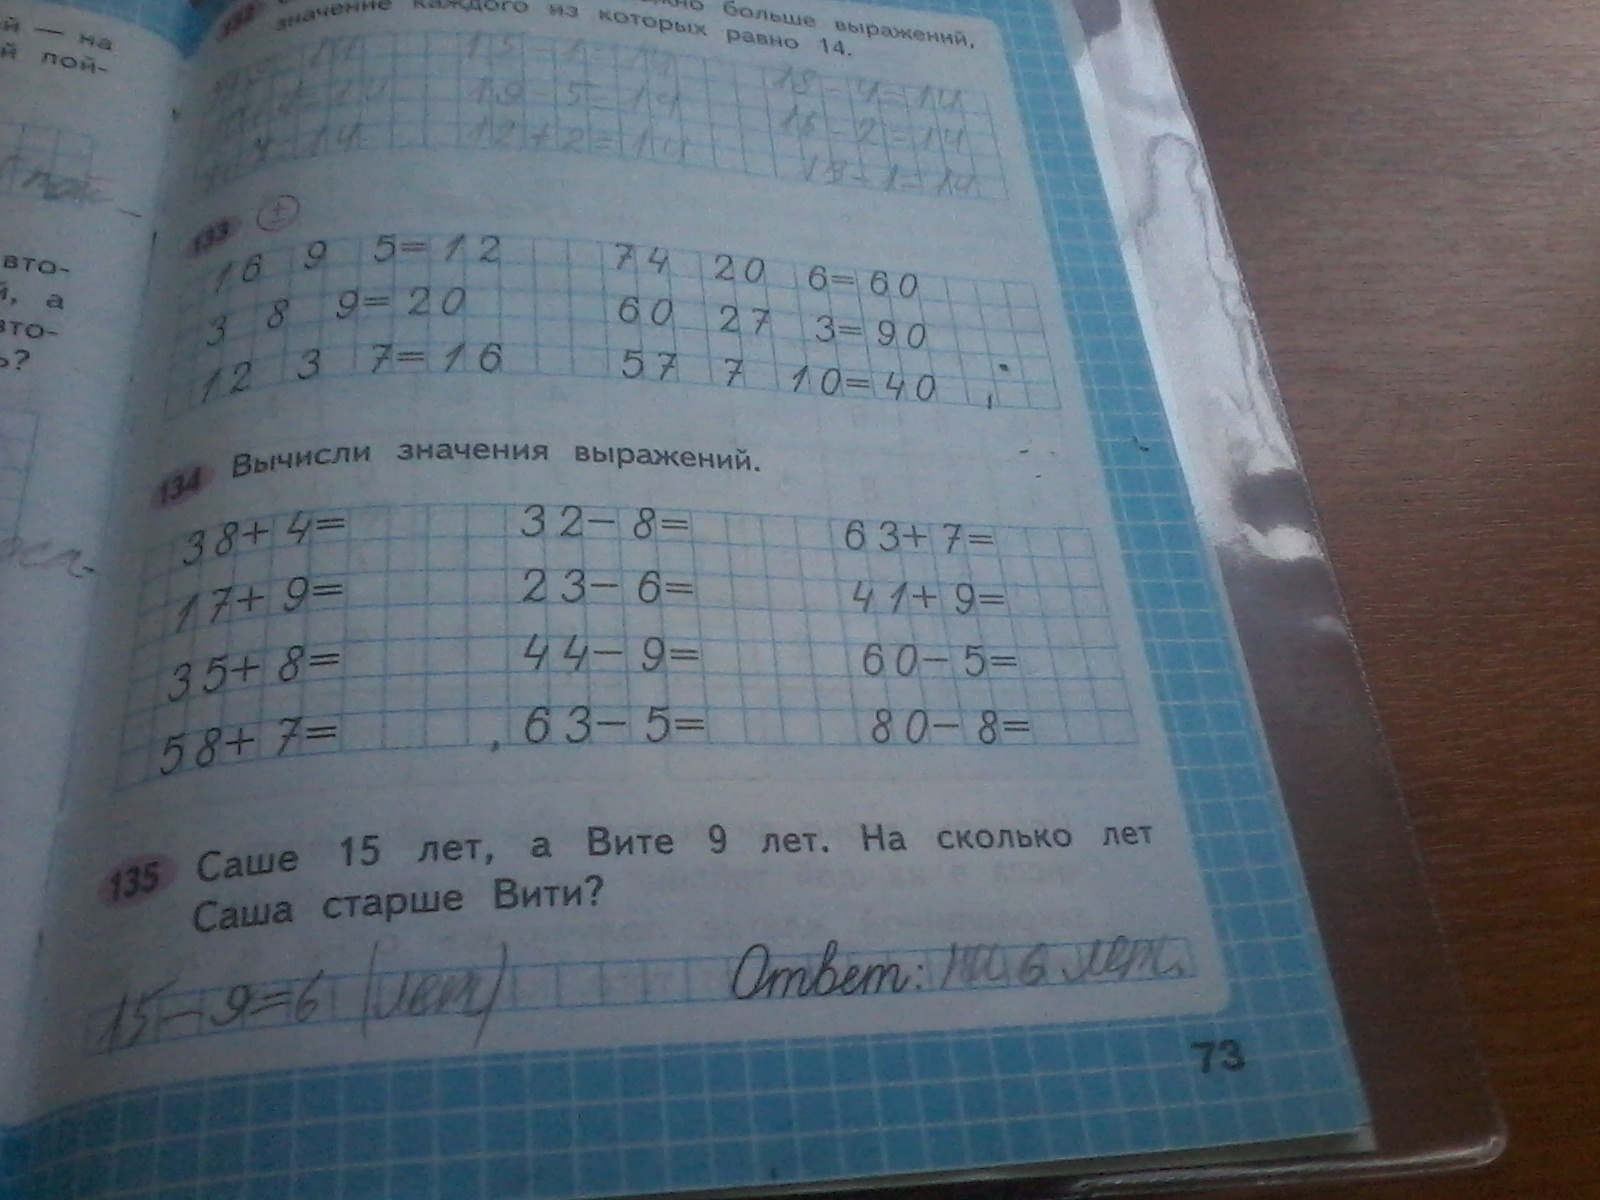 й — на
й пой-
вто-
й, а
вто-
ь?
132 больше выражений,
значение каждого из которых равно 14.
15 - 1 = 14
19 - 5 = 14 18 - 4 = 14
12 + 2 = 14 16 - 2 = 14
133 ±
16 9 5= 12 74 20 6= 60
3 8 9= 20 60 27 3= 90
12 3 7= 16 57 7 10= 40
134 Вычисли значения выражений.
38+ 4= 32- 8= 63+ 7=
17+ 9= 23- 6= 41+ 9=
35+ 8= 44- 9= 60- 5=
58+ 7= 63- 5= 80- 8=
135 Саше 15 лет, а Вите 9 лет. На сколько лет
Саша старше Вити?
15 - 9 = 6 (лет) Ответ: на 6 лет.
73